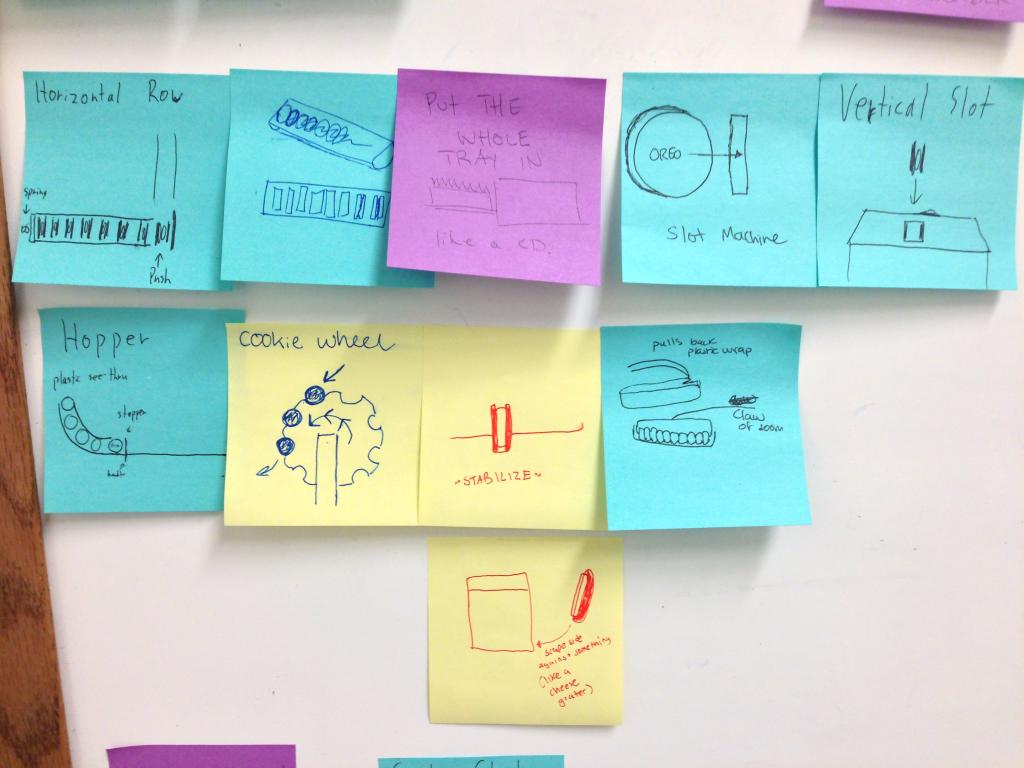 Horizontal Row
spring
Push
PUT THE
WHOLE
TRAY IN
like a CD
OREO
Slot Machine
Vertical Slot
Hopper
plastic see-thru
stopper
cookie wheel
~STABILIZE~
pulls back
plastic wrap
Claw
of doom
scrape side
against something
(like a
cheese
grater)